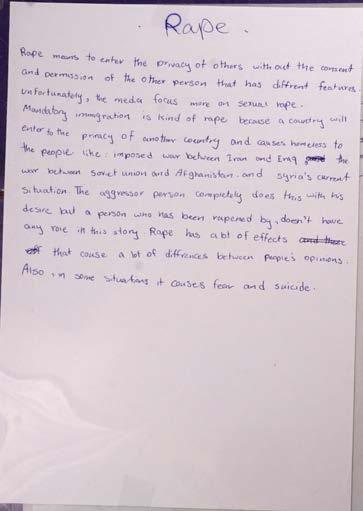 . Rape .
Rape means to enter the privacy of others without the consent
and permission of the other person that has diffrent features.
unfortunately, the media focus more on sexual rape.
Mandatory immgration is kind of rape because a country will
enter to the privacy of another country and causes homeless to
the people like: imposed war between Iran and Eraq the
war between soviet union and Afghanistan. and syria's current
situation. The aggressor person completely does this with his
desire but a person who has been rapened by, doesn't have
any role in this story. Rape has a lot of effects
that cause a lot of diffrences between people's opinions.
Also in some situations it causes fear and suicide.